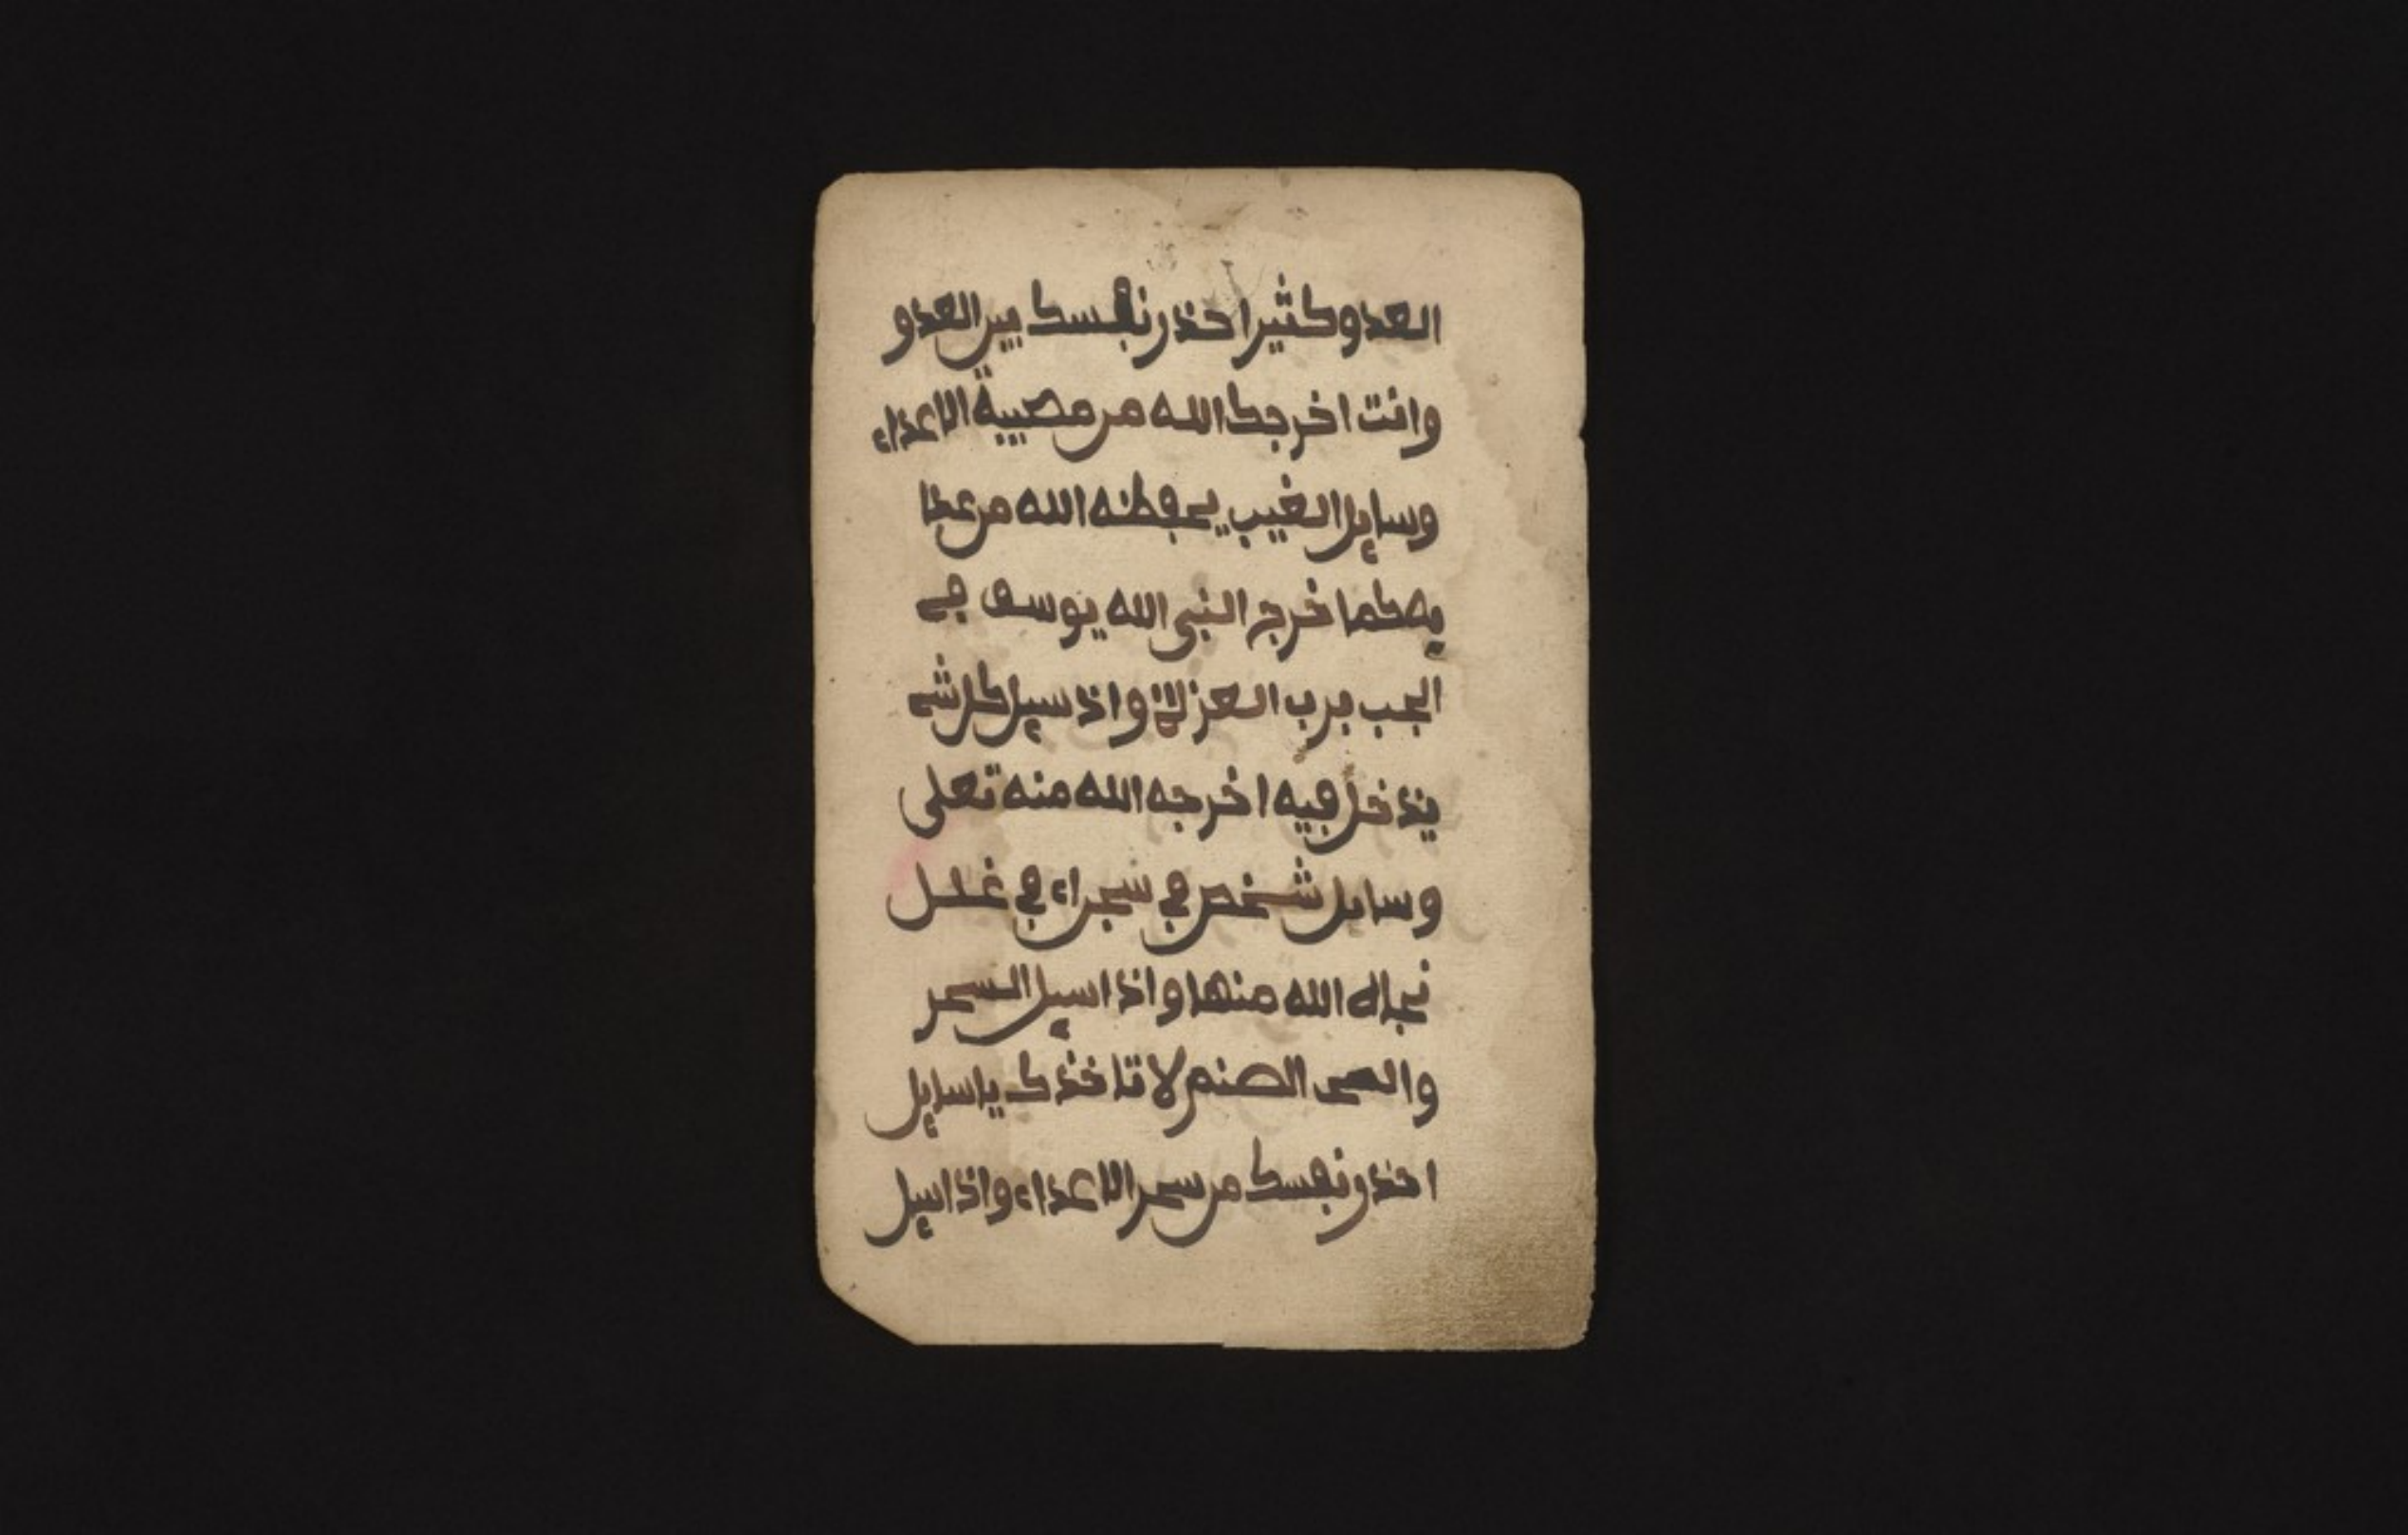 العدو كثيرا حذر نفسك بين العدو
وانت اخرجك الله من مصيبة الاعداء
وسايل الغيب يحفظه الله من عدا
يه كما خرج النبي الله يوسف في
الجب برب العزة واذ سيل كل شے
يذخل فيه اخرجه الله منه تعلى
وسايل شخص في سجن اء في غلل
نجاه الله منها واذا سيل السحر
والسحر الصنم لا تاخذك ياسايل
احذر نفسك من سحر الاعداء واذا سيل